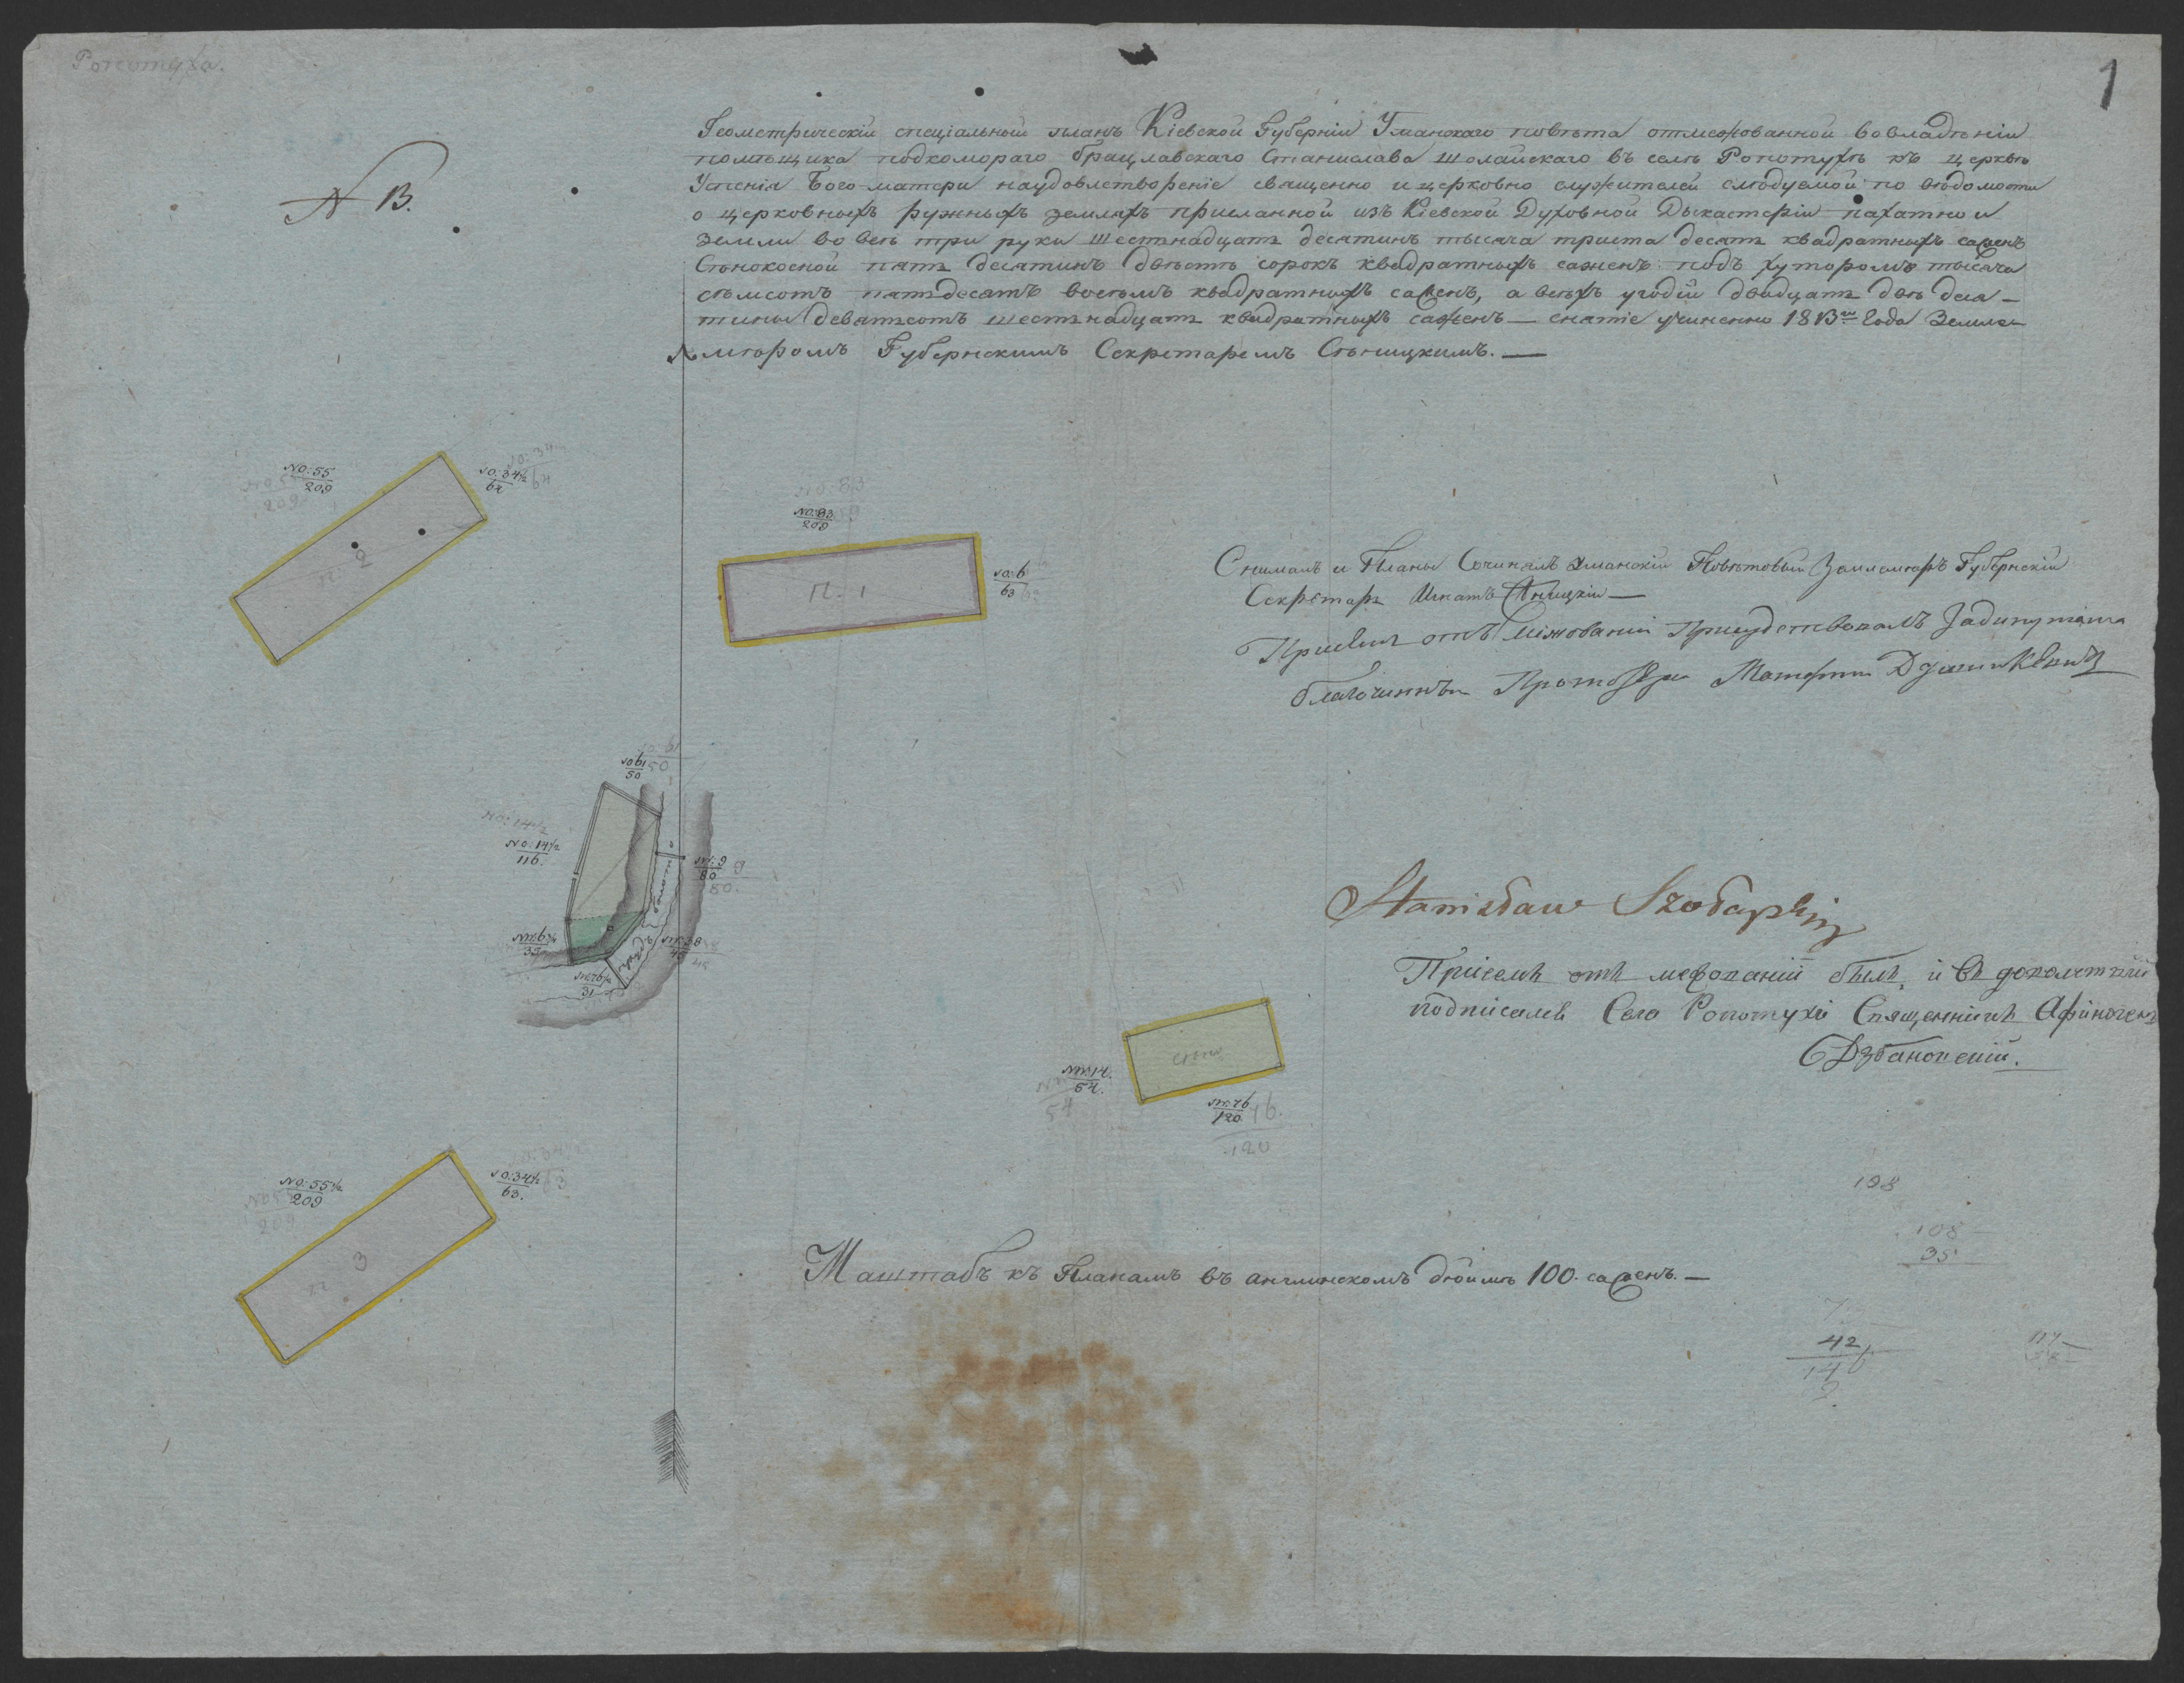 Ропотуха.
1
N 13.
Геометрическій спеціальной планъ Кіевской Губерніи Уманскаго повѣта отмежованной во владѣніи
помѣщика подкомораго брацлавскаго Станислава Шолайскаго въ селѣ Ропотухѣ къ церквѣ
Успенія Бого-матери на удовлетвореніе священно и церковно служителей слѣдуемой по вѣдомости
о церковныхъ ружныхъ земляхъ присланной изъ Кіевской Духовной Дыкастеріи пахатной
земли во всѣ три руки шестьнадцать десятинъ тысяча триста десять квадратныхъ саженъ
Сѣнокосной пять десятинъ двѣстѣ сорокъ квадратныхъ саженъ подъ хуторомъ тысяча
сѣмсотъ пятьдесятъ восемъ квадратныхъ саженъ, а всѣхъ угодій двадцать двѣ деся-
тины девятьсотъ шестьнадцать квадратныхъ саженъ — снятіе учиненно 1813го Года Землѣ-
мѣромъ Губернскимъ Секретаремъ Сѣницкимъ. —
NO: 55
209
SO: 34½
64
п. 2
NO: 83
209
SO: 6
63
П. 1
Снималъ и Планы Сочинялъ Уманскій Повѣтовый Землемѣръ Губернскій
Секретарь Игнатъ Сѣницкій —
При отмежованіи Присудствовалъ За депутата
благочинный Протоіерей
SO 61
50
NO: 14½
116.
SW: 9
80
болото
NW: 6¾
35
SW: 38
45
31
прудъ
Stanisław Szołayski
Присемъ отъ межованіи былъ, и въ
подписалсѣ Села Ропотухи Священникъ Афиногенъ
Дзбановскій.
сѣно
NW: 14.
54.
SW: 76
120
NO: 55½
209
SO: 34½
63.
п 3
108
108
35
Маштабъ къ Планамъ въ англинскомъ дюймѣ 100. саженъ. —
42
14